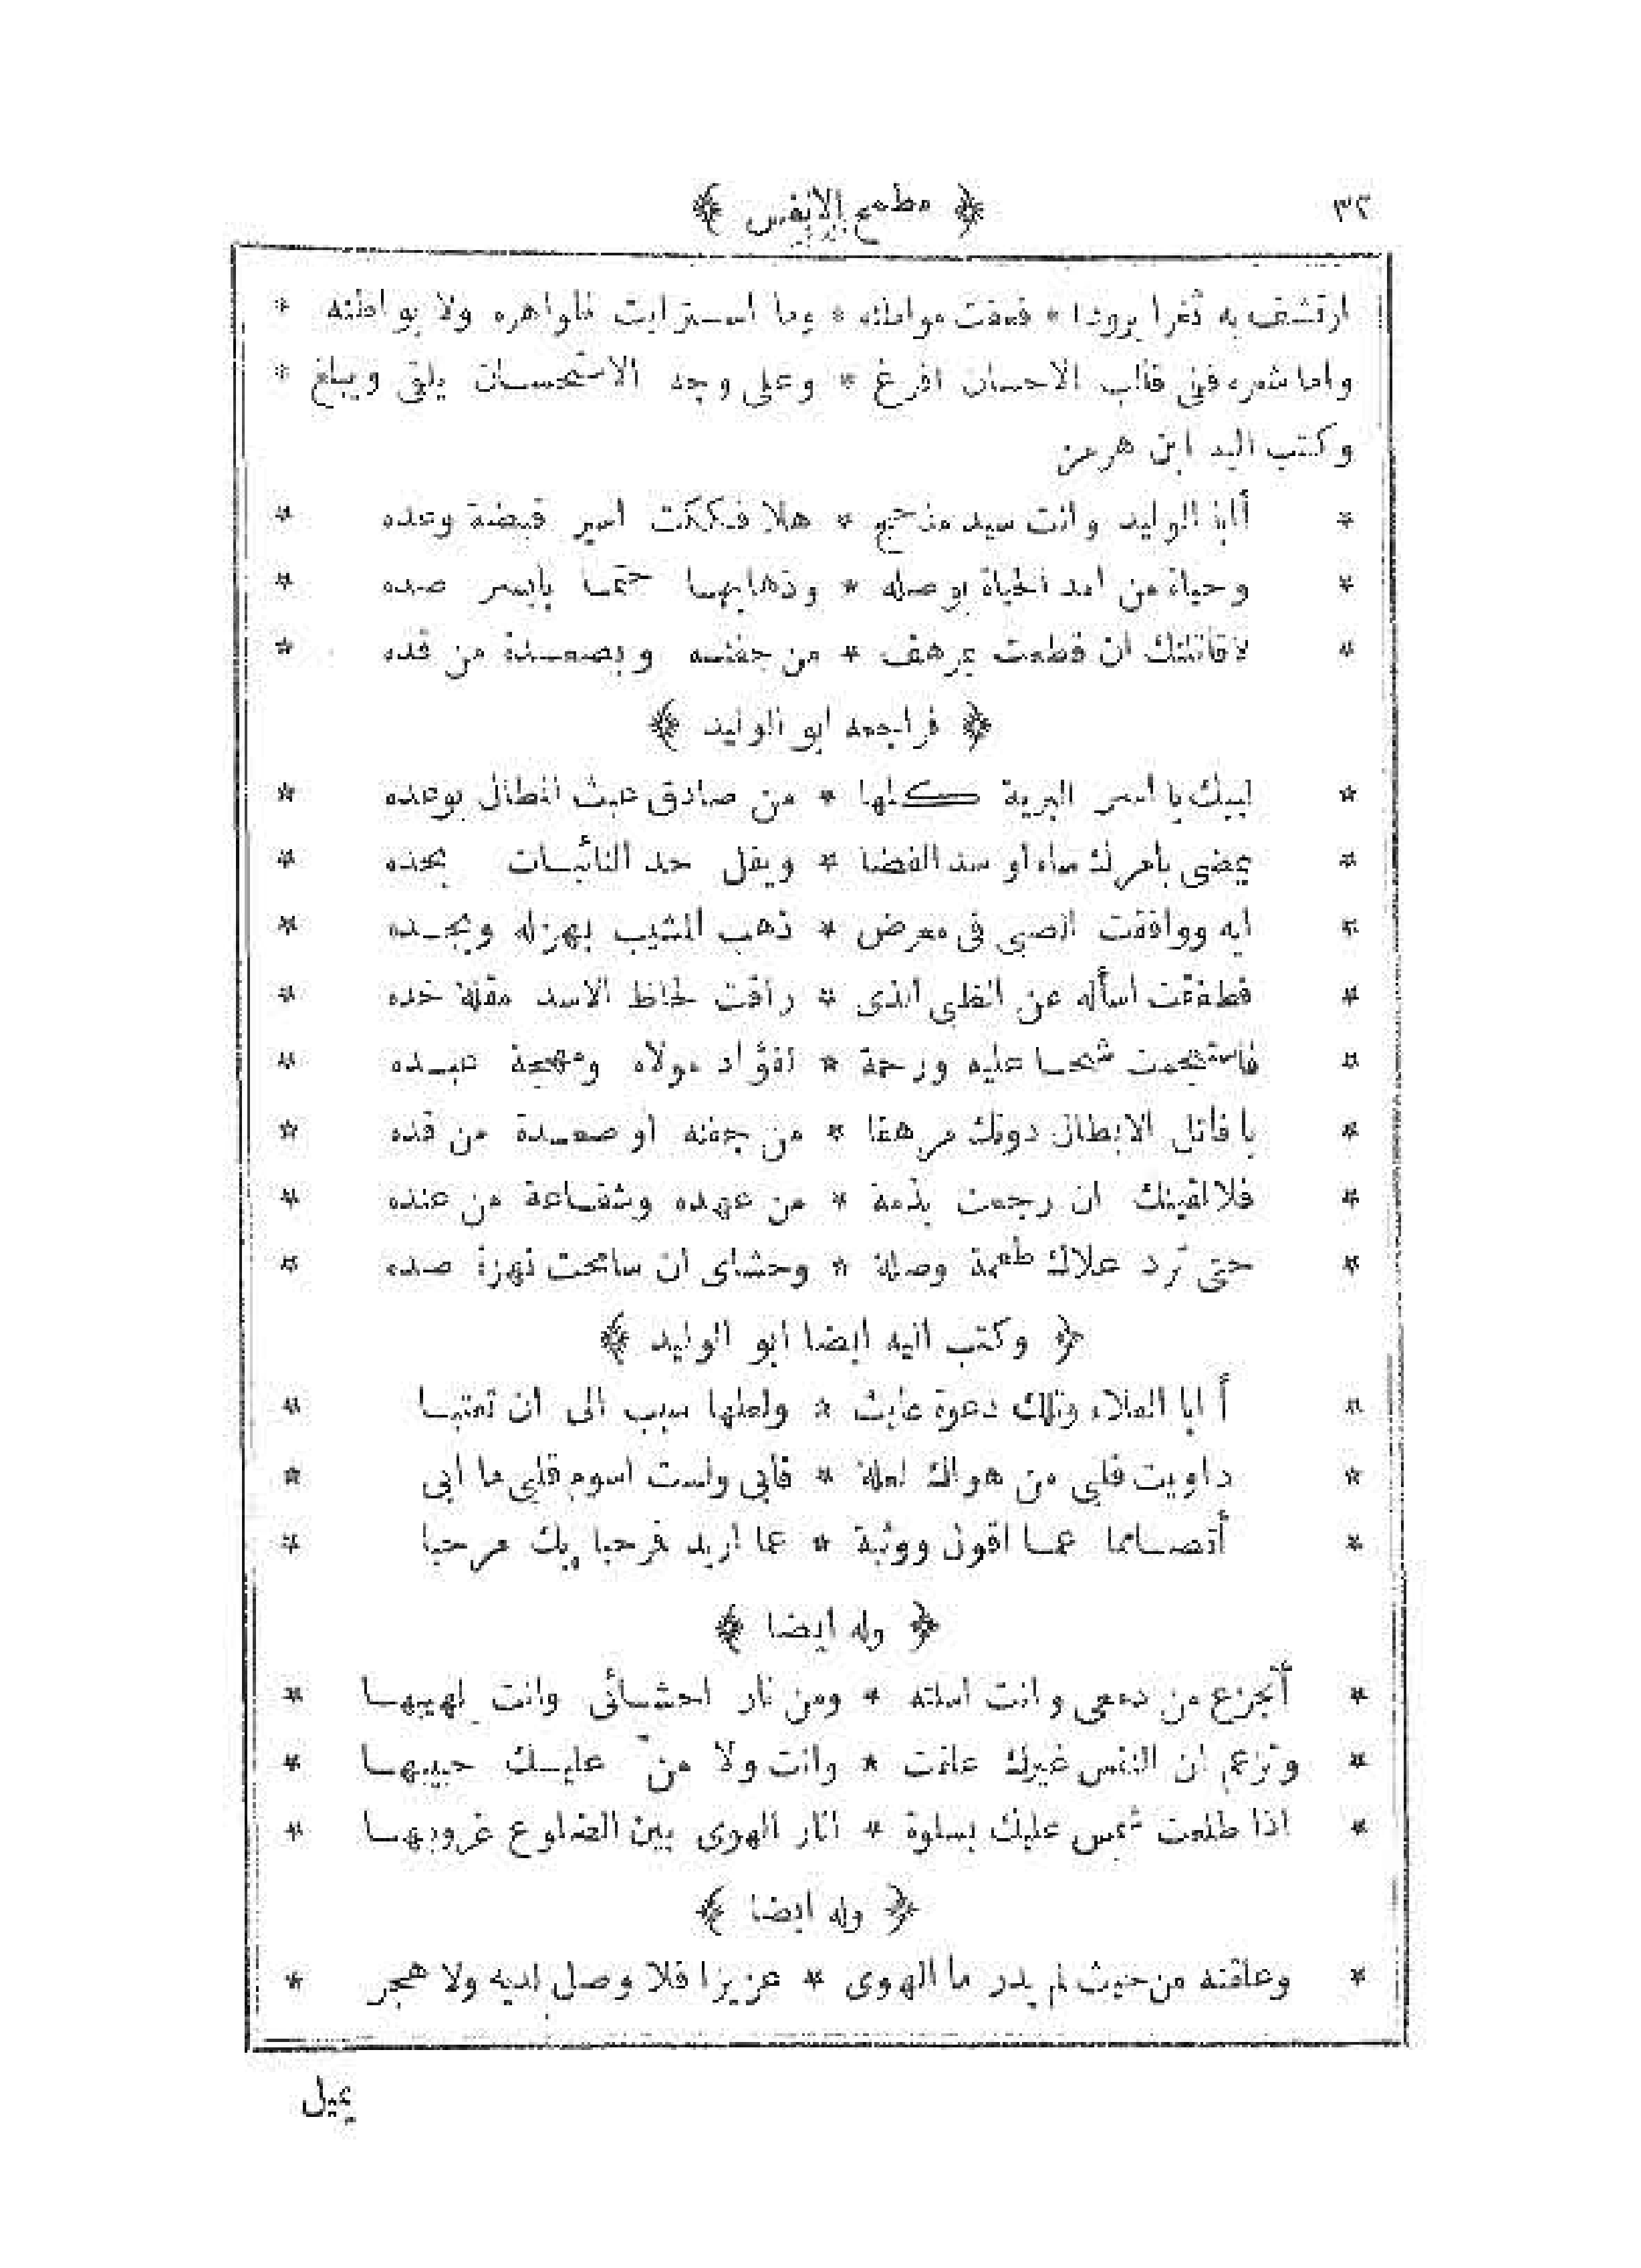 ٣٢ ﴿ مطمح الانفس ﴾
ارتشف به ثغرا برودا * فعفت مواطئه * وما استرابت ظواهره ولا بواطنه *
واما شعره ففى قالب الاحسان افرغ * وعلى وجه الاستحسان يلقى ويبلغ *
وكتب اليه ابن هرمز
* أأبا الوليد وانت سيد مذحج * هلا فككت اسير قبضة وعده *
* وحياة من امد الحياة بوصله * وذهابها حتما بأيسر صده *
* لاقاتلنك ان قطعت بمرهف * من جفنه وبصعدة من قده *
﴿ فراجعه ابو الوليد ﴾
* لبيك يا اسر البرية كلها * من صادق عبث المطال بوعده *
* يمضى بأمرك ساء او سد الفضا * ويفل حد النائبات بحده *
* ايه ووافقت الصبى فى معرض * ذهب المشيب بهزله وبجده *
* فطفقت اسأله عن الظبى الذى * راقت لحاظ الاسد مقلة خده *
* شحا عليه ورحمة * لفؤاد مولاه ومهجة عبده *
* يا قاتل الابطال دونك مرهفا * من جفنه او صعدة من قده *
* فلالقينك ان رجعت بذمة * من عهده وشفاعة من عنده *
* حتى ترد علاك طعمة وصله * وحشاى ان سامحت نهزة صده *
﴿ وكتب اليه ايضا ابو الوليد ﴾
* أ ابا العلاء وتلك دعوة عابث * ولعلها سبب الى ان تعتبا *
* داويت قلبى من هواك لعله * فأبى ولست اسوم قلبى ما ابى *
* أتصاما عما اقول ووثبة * عما اريد فرحبا بك مرحبا *
﴿ وله ايضا ﴾
* أتجزع من دمعى وانت اسلته * ومن نار احشائى وانت لهيبها *
* وتزعم ان النفس غيرك علقت * وانت ولا منّ عليك حبيبها *
* اذا طلعت شمس عليك بسلوة * اثار الهوى بين الضلوع غروبها *
﴿ وله ايضا ﴾
* وعلقته من حيث لم يدر ما الهوى * عزيزا فلا وصل لديه ولا هجر *
يميل